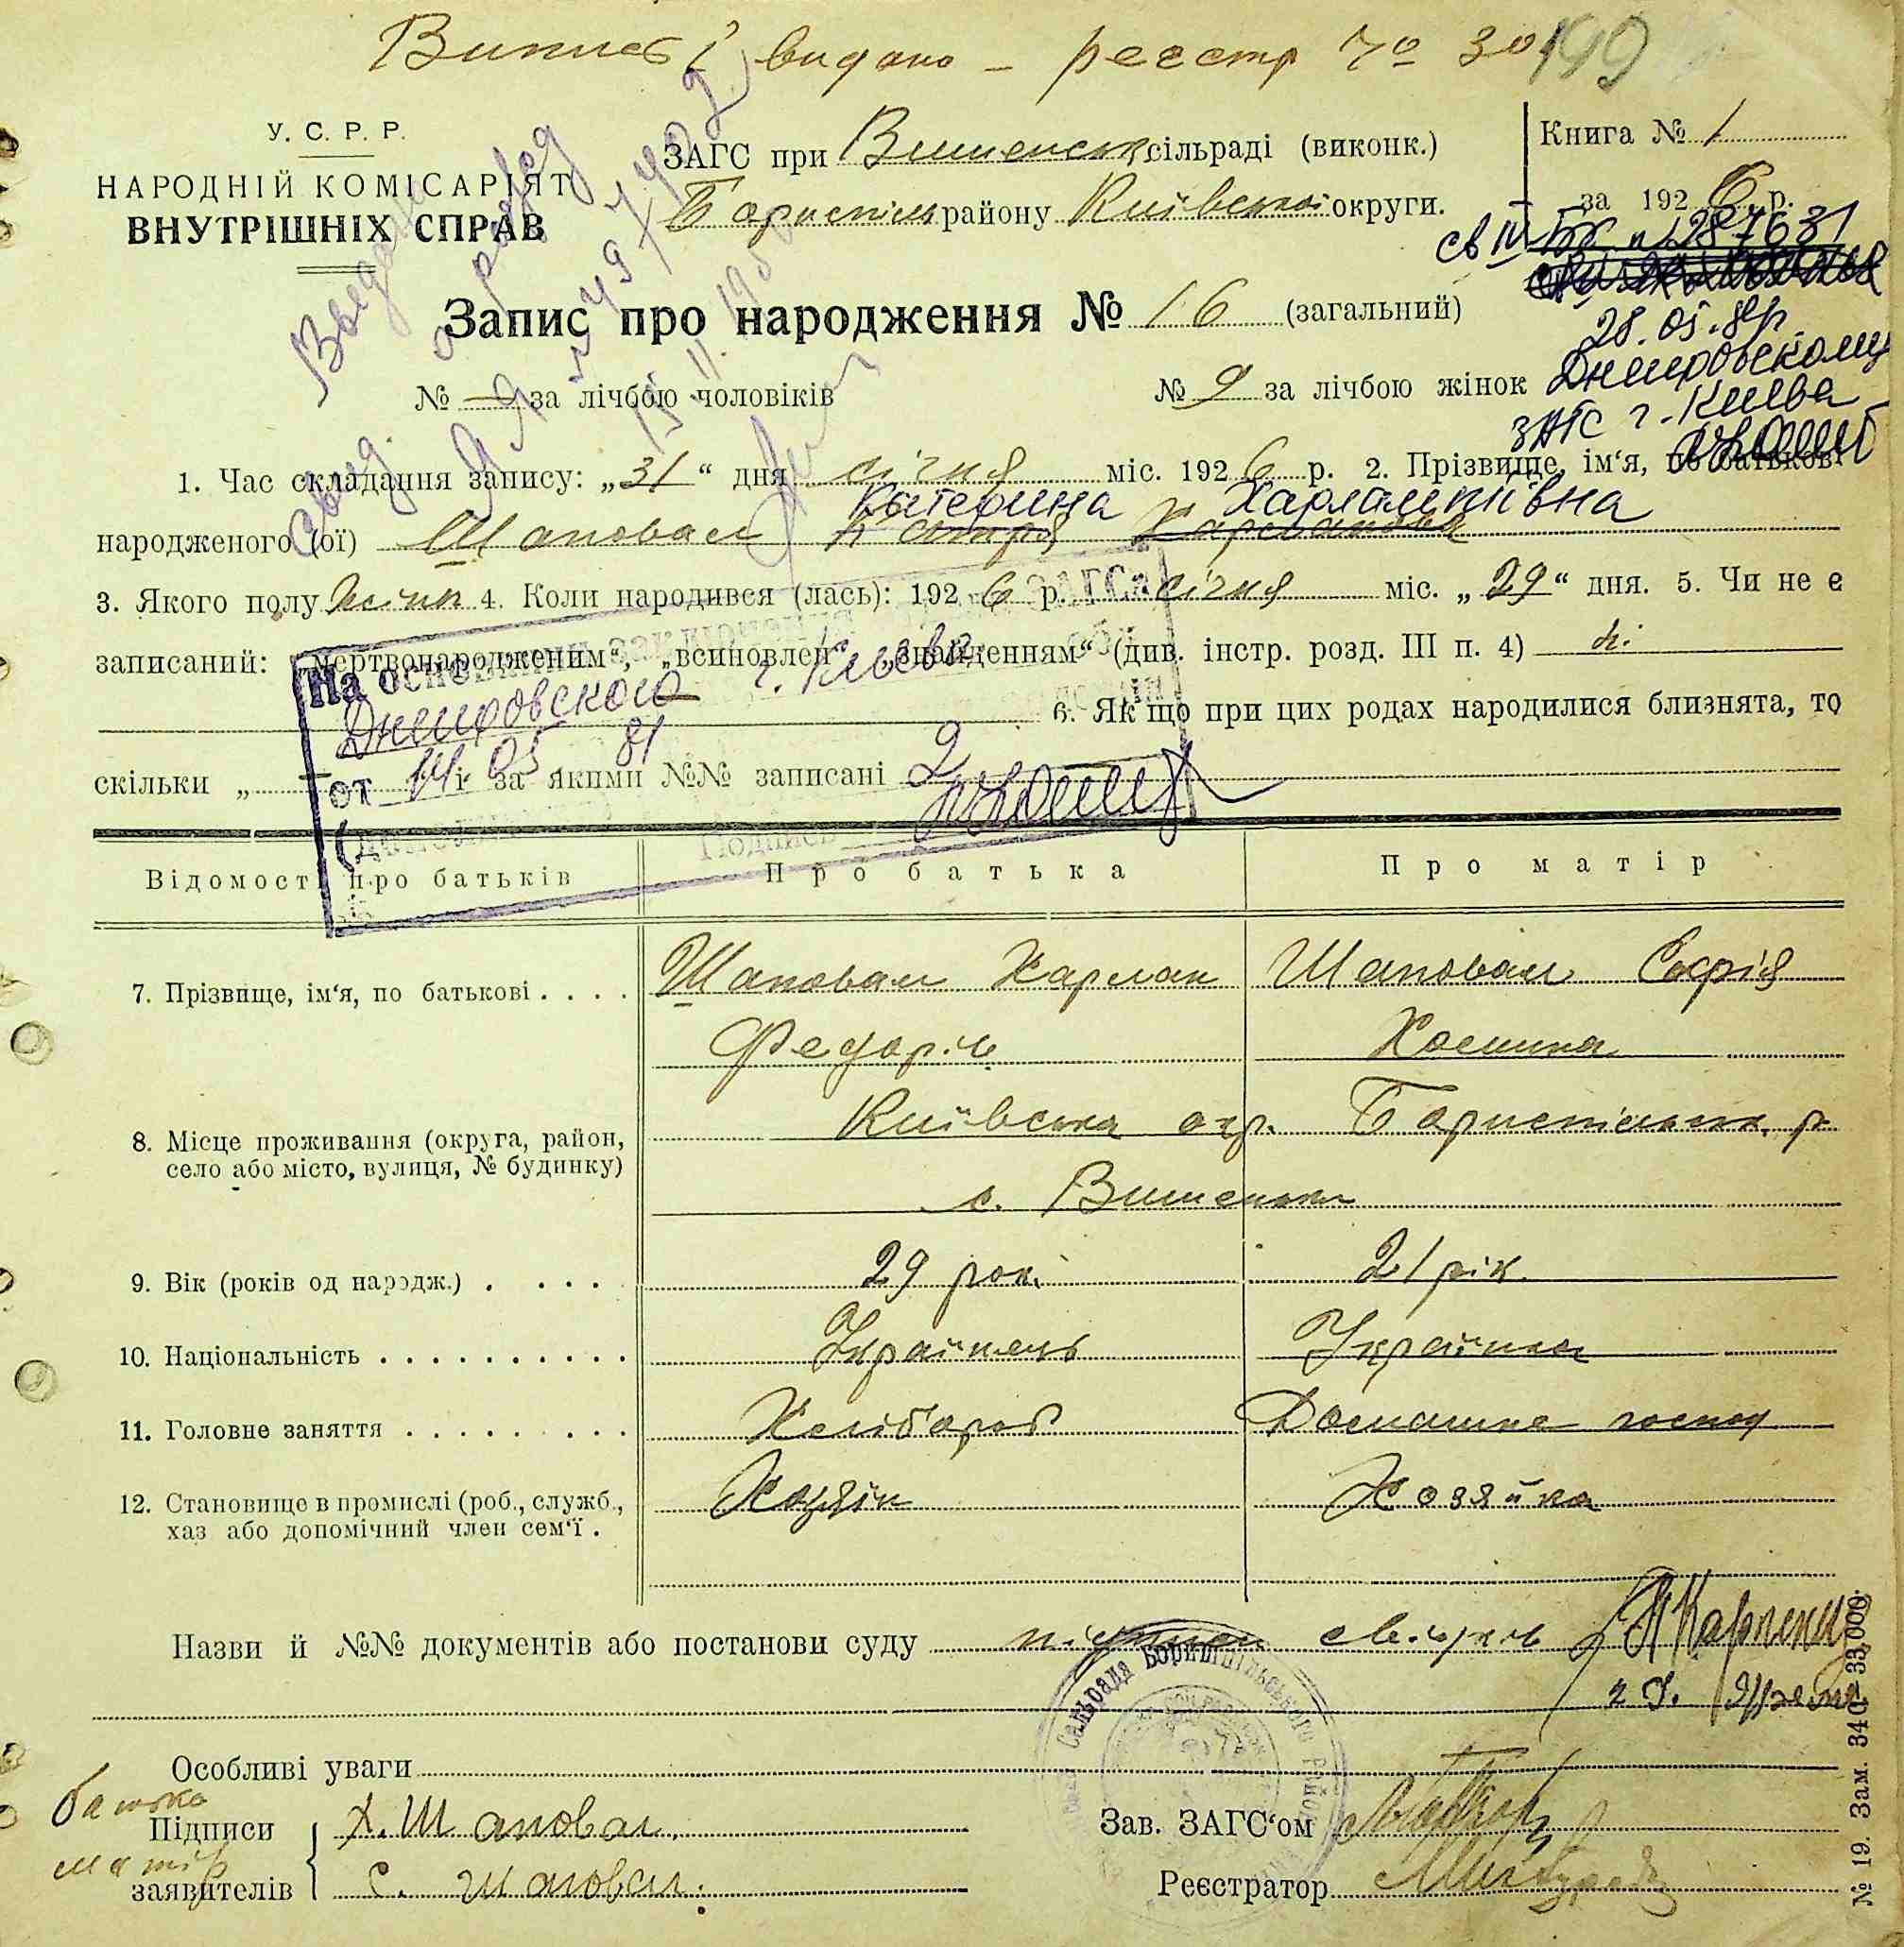 видано - реєстр № 30
199
У. С. Р. Р.
НАРОДНІЙ КОМІСАРІЯТ
ВНУТРІШНІХ СПРАВ
ЗАГС при Вишенськ. сільраді (виконк.)
Бориспіль району Київської округи.
Книга № 1
за 1926 р.
св IV БК № 287631
28.05.81р
Днепровскому
ЗАГС г. Киева
Запис про народження № 16 (загальний)
№ за лічбою чоловіків
№ 9 за лічбою жінок
1. Час складання запису: „31“ дня січня міс. 1926 р. 2. Прізвище, ім‘я, по батькові
Катерина Харлампіївна
народженого (ої) Шаповал
3. Якого полу жіноч 4. Коли народився (лась): 1926 р. січня міс. „29“ дня. 5. Чи не є
записаний: „мертвонародженим“, „всиновлен“, „знайденням“ (див. інстр. розд. III п. 4) ні
На основании заключения ЗАГСа
Днепровского г. Киева
6. Як що при цих родах народилися близнята, то
скільки „ і за якими №№ записані
от 14 05 81
Подпись
Відомості про батьків
Про батька
Про матір
7. Прізвище, ім‘я, по батькові . . . .
Шаповал Харлан
Шаповал Софія
Федорів
Хомина
8. Місце проживання (округа, район,
село або місто, вулиця, № будинку)
Київська окр. Бориспільськ. р.
с. Вишеньки
9. Вік (років од народж.) . . . .
29 рок.
21 рік.
10. Національність . . . . . . . . . .
Українець
Українка
11. Головне заняття . . . . . . . .
Хлібороб
Домашнє господ
12. Становище в промислі (роб., служб.,
хаз або допомічний член сем‘ї .
Хозяін
Хозяйка
Назви й №№ документів або постанови суду підписи свідків
Особливі уваги
батько
Підписи
Х. Шаповал.
мать
заявителів
С. Шаповал.
Сільрада Бориспільського Району
Зав. ЗАГС‘ом
Реєстратор
№ 19. Зам. 340—33,000.